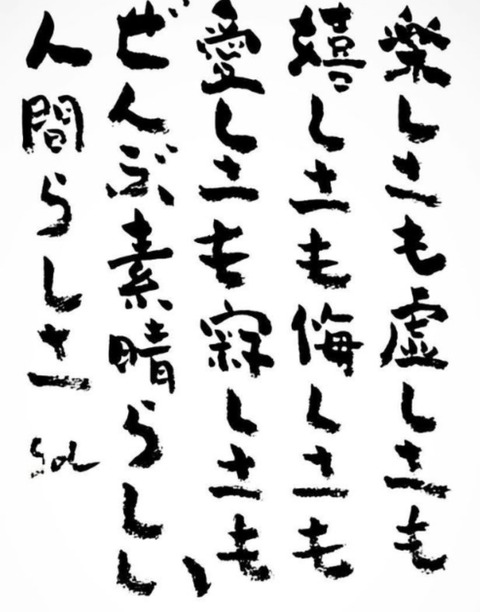 楽しさも虚しさも
嬉しさも悔しさも
愛しさも寂しさも
ぜんぶ素晴らしい
人間らしさ